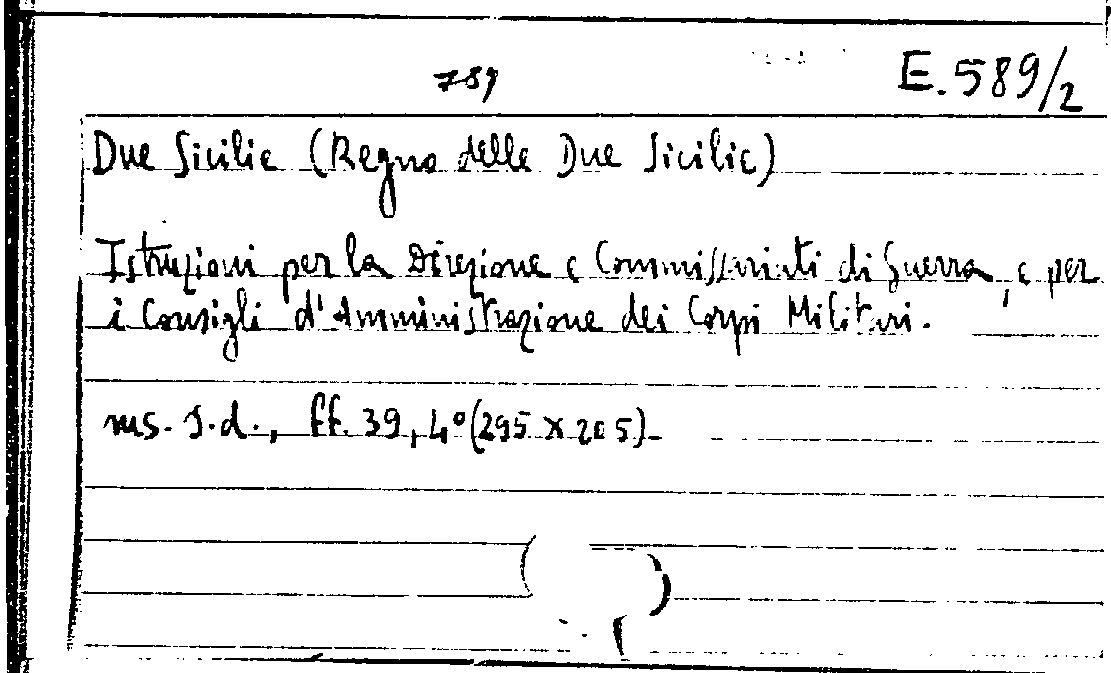 789
E. 589/2
Due Sicilie (Regno delle Due Sicilie)
Istruzioni per la Direzione e Commissariati di Guerra, e per
i Consigli d'Amministrazione dei Corpi Militari.
ms. s.d., ff. 39, 4° (295 x 205).